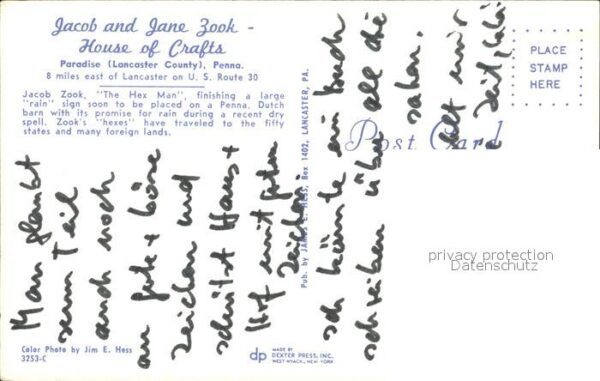 Jacob and Jane Zook -
House of Crafts
Paradise (Lancaster County), Penna.
8 miles east of Lancaster on U. S. Route 30
Jacob Zook, "The Hex Man", finishing a large
"rain" sign soon to be placed on a Penna. Dutch
barn with its promise for rain during a recent dry
spell. Zook's "hexes" have traveled to the fifty
states and many foreign lands.
Man glaubt
zum Teil
auch noch
an gute + böse
Zeichen und
schützt Haus +
Hof mit guten
Zeichen.
Ich könnte ein Buch
schreiben über all die
Sachen.
mir
Pub. by James E. Hess, Box 1402, LANCASTER, PA.
Post Card
PLACE
STAMP
HERE
privacy protection
Datenschutz
Color Photo by Jim E. Hess
3253-C
dp
MADE BY
DEXTER PRESS, INC.
WEST NYACK, NEW YORK